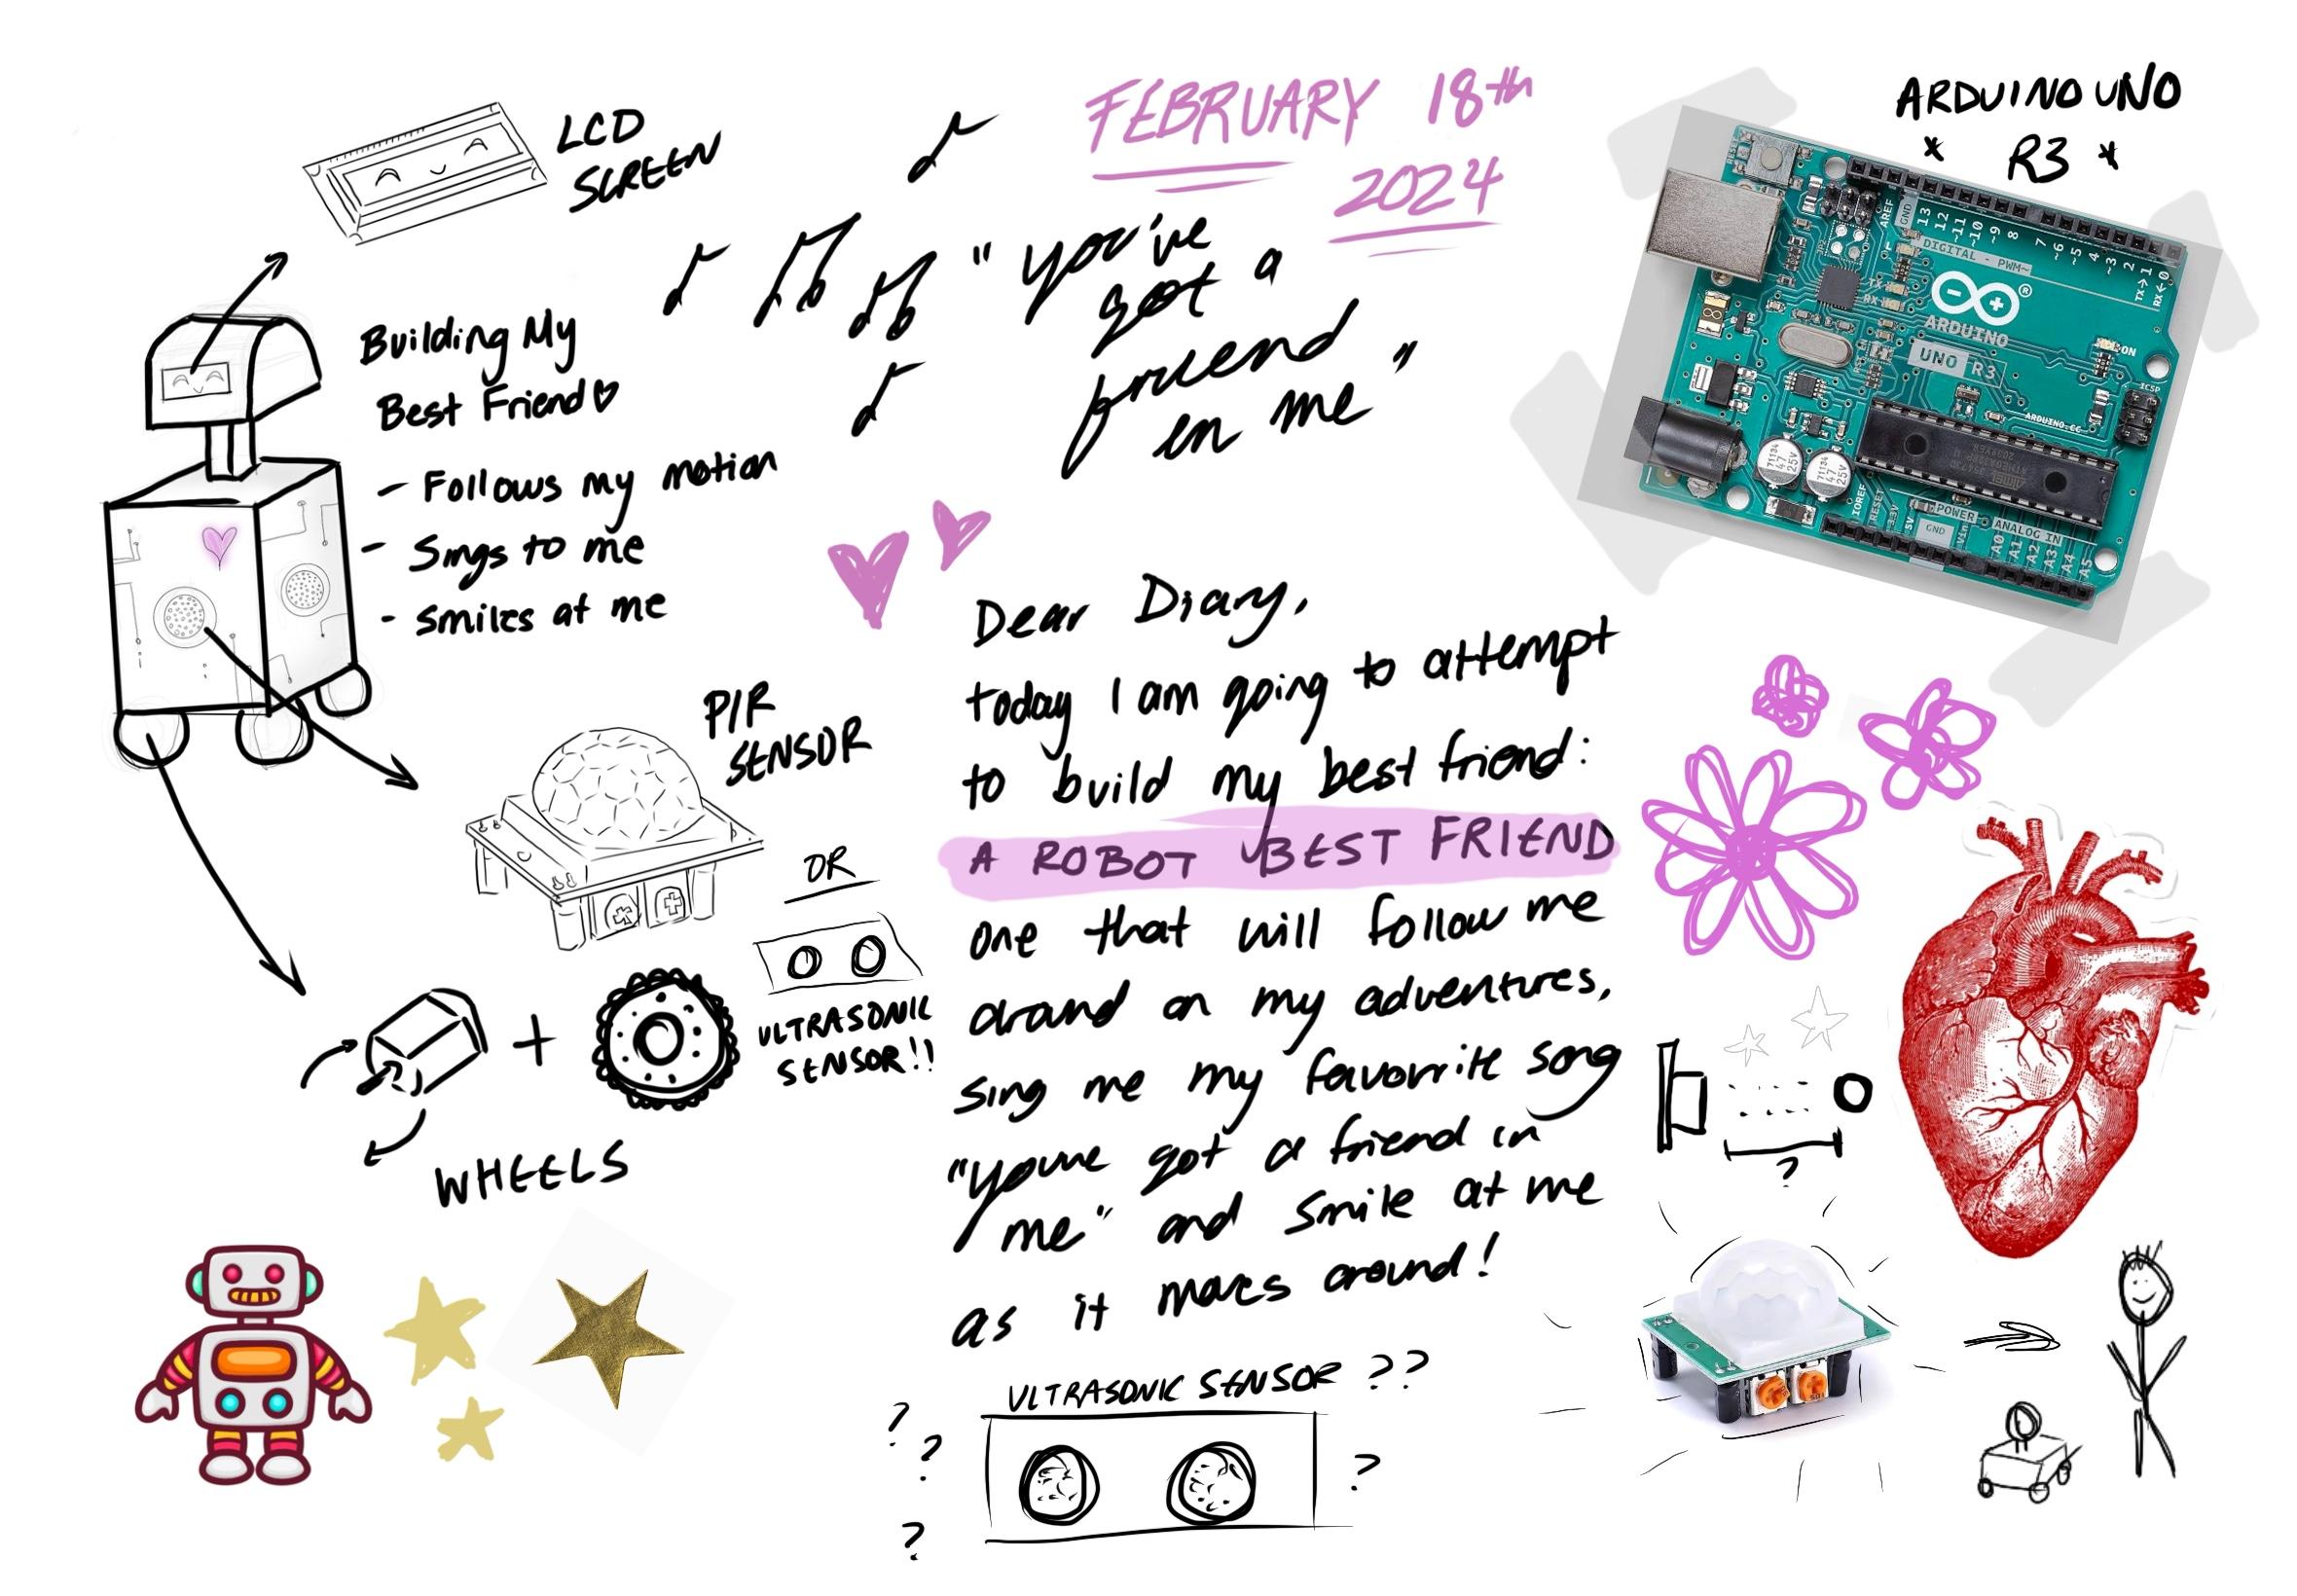 FEBRUARY 18th
2024
ARDUINO UNO
* R3 *
LCD
SCREEN
"you've
got a
friend
in me"
Building My
Best Friend♡
- Follows my motion
- Sings to me
- Smiles at me
PIR
SENSOR
OR
ULTRASONIC
SENSOR!!
+
WHEELS
Dear Diary,
today I am going to attempt
to build my best friend:
A ROBOT BEST FRIEND
one that will follow me
around on my adventures,
sing me my favorite song
"youve got a friend in
me" and smile at me
as it moves around!
ULTRASONIC SENSOR ??
?
?
?
?
?
AREF
GND
13
12
~11
~10
~9
8
7
~6
~5
4
~3
2
TX→1
RX←0
DIGITAL - PWM~
TX
RX
ARDUINO
UNO R3
ON
ICSP
ARDUINO.CC
47
25V
47
25V
IOREF
RESET
3.3V
5V
GND
Vin
POWER
ANALOG IN
A0
A1
A2
A3
A4
A5